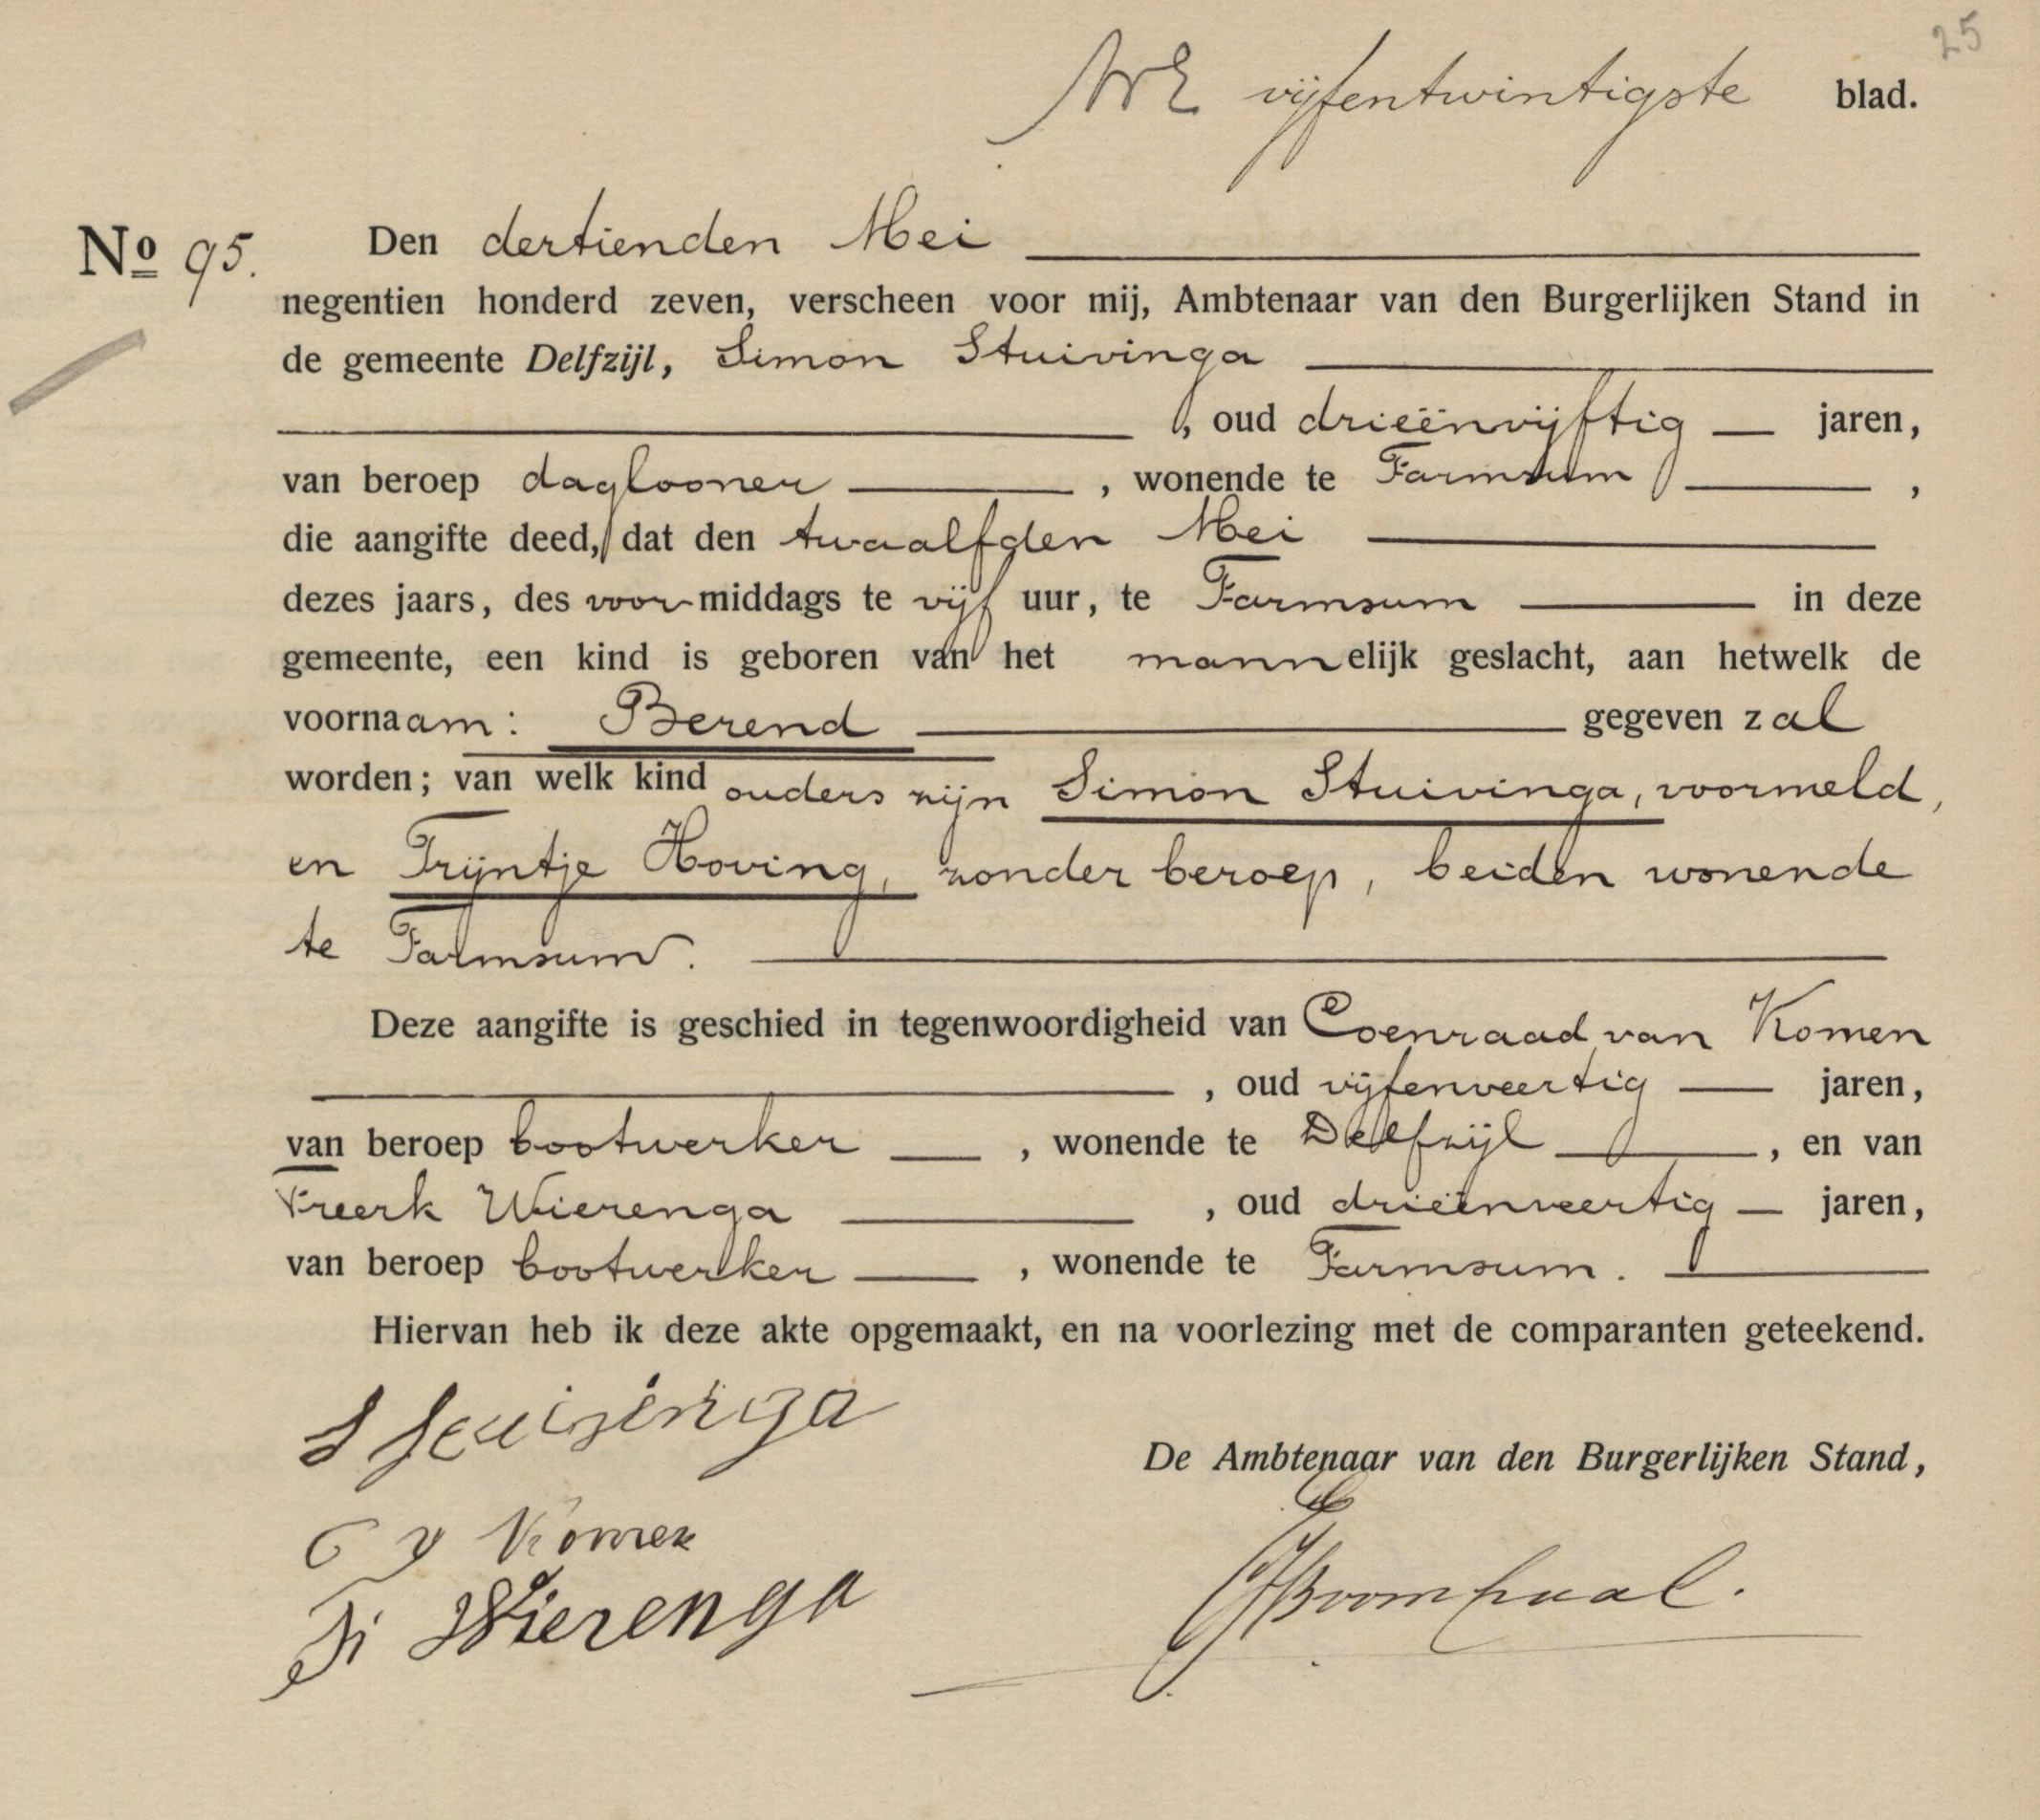 25
vijfentwintigste blad.
No 95. Den dertienden Mei
negentien honderd zeven, verscheen voor mij, Ambtenaar van den Burgerlijken Stand in
de gemeente Delfzijl, Simon Stuivinga
, oud drieënvijftig jaren,
van beroep daglooner, wonende te Farmsum,
die aangifte deed, dat den twaalfden Mei
dezes jaars, des voormiddags te vijf uur, te Farmsum in deze
gemeente, een kind is geboren van het mannelijk geslacht, aan hetwelk de
voornaam: Berend gegeven zal
worden; van welk kind ouders zijn Simon Stuivinga, voormeld,
en Trijntje Hoving, zonder beroep, beiden wonende
te Farmsum.
Deze aangifte is geschied in tegenwoordigheid van Coenraad van Komen
, oud vijfenveertig jaren,
van beroep bootwerker, wonende te Delfzijl, en van
Freerk Wierenga, oud drieënveertig jaren,
van beroep bootwerker, wonende te Farmsum.
Hiervan heb ik deze akte opgemaakt, en na voorlezing met de comparanten geteekend.
S Stuivinga
De Ambtenaar van den Burgerlijken Stand,
C v Komen
Wierenga